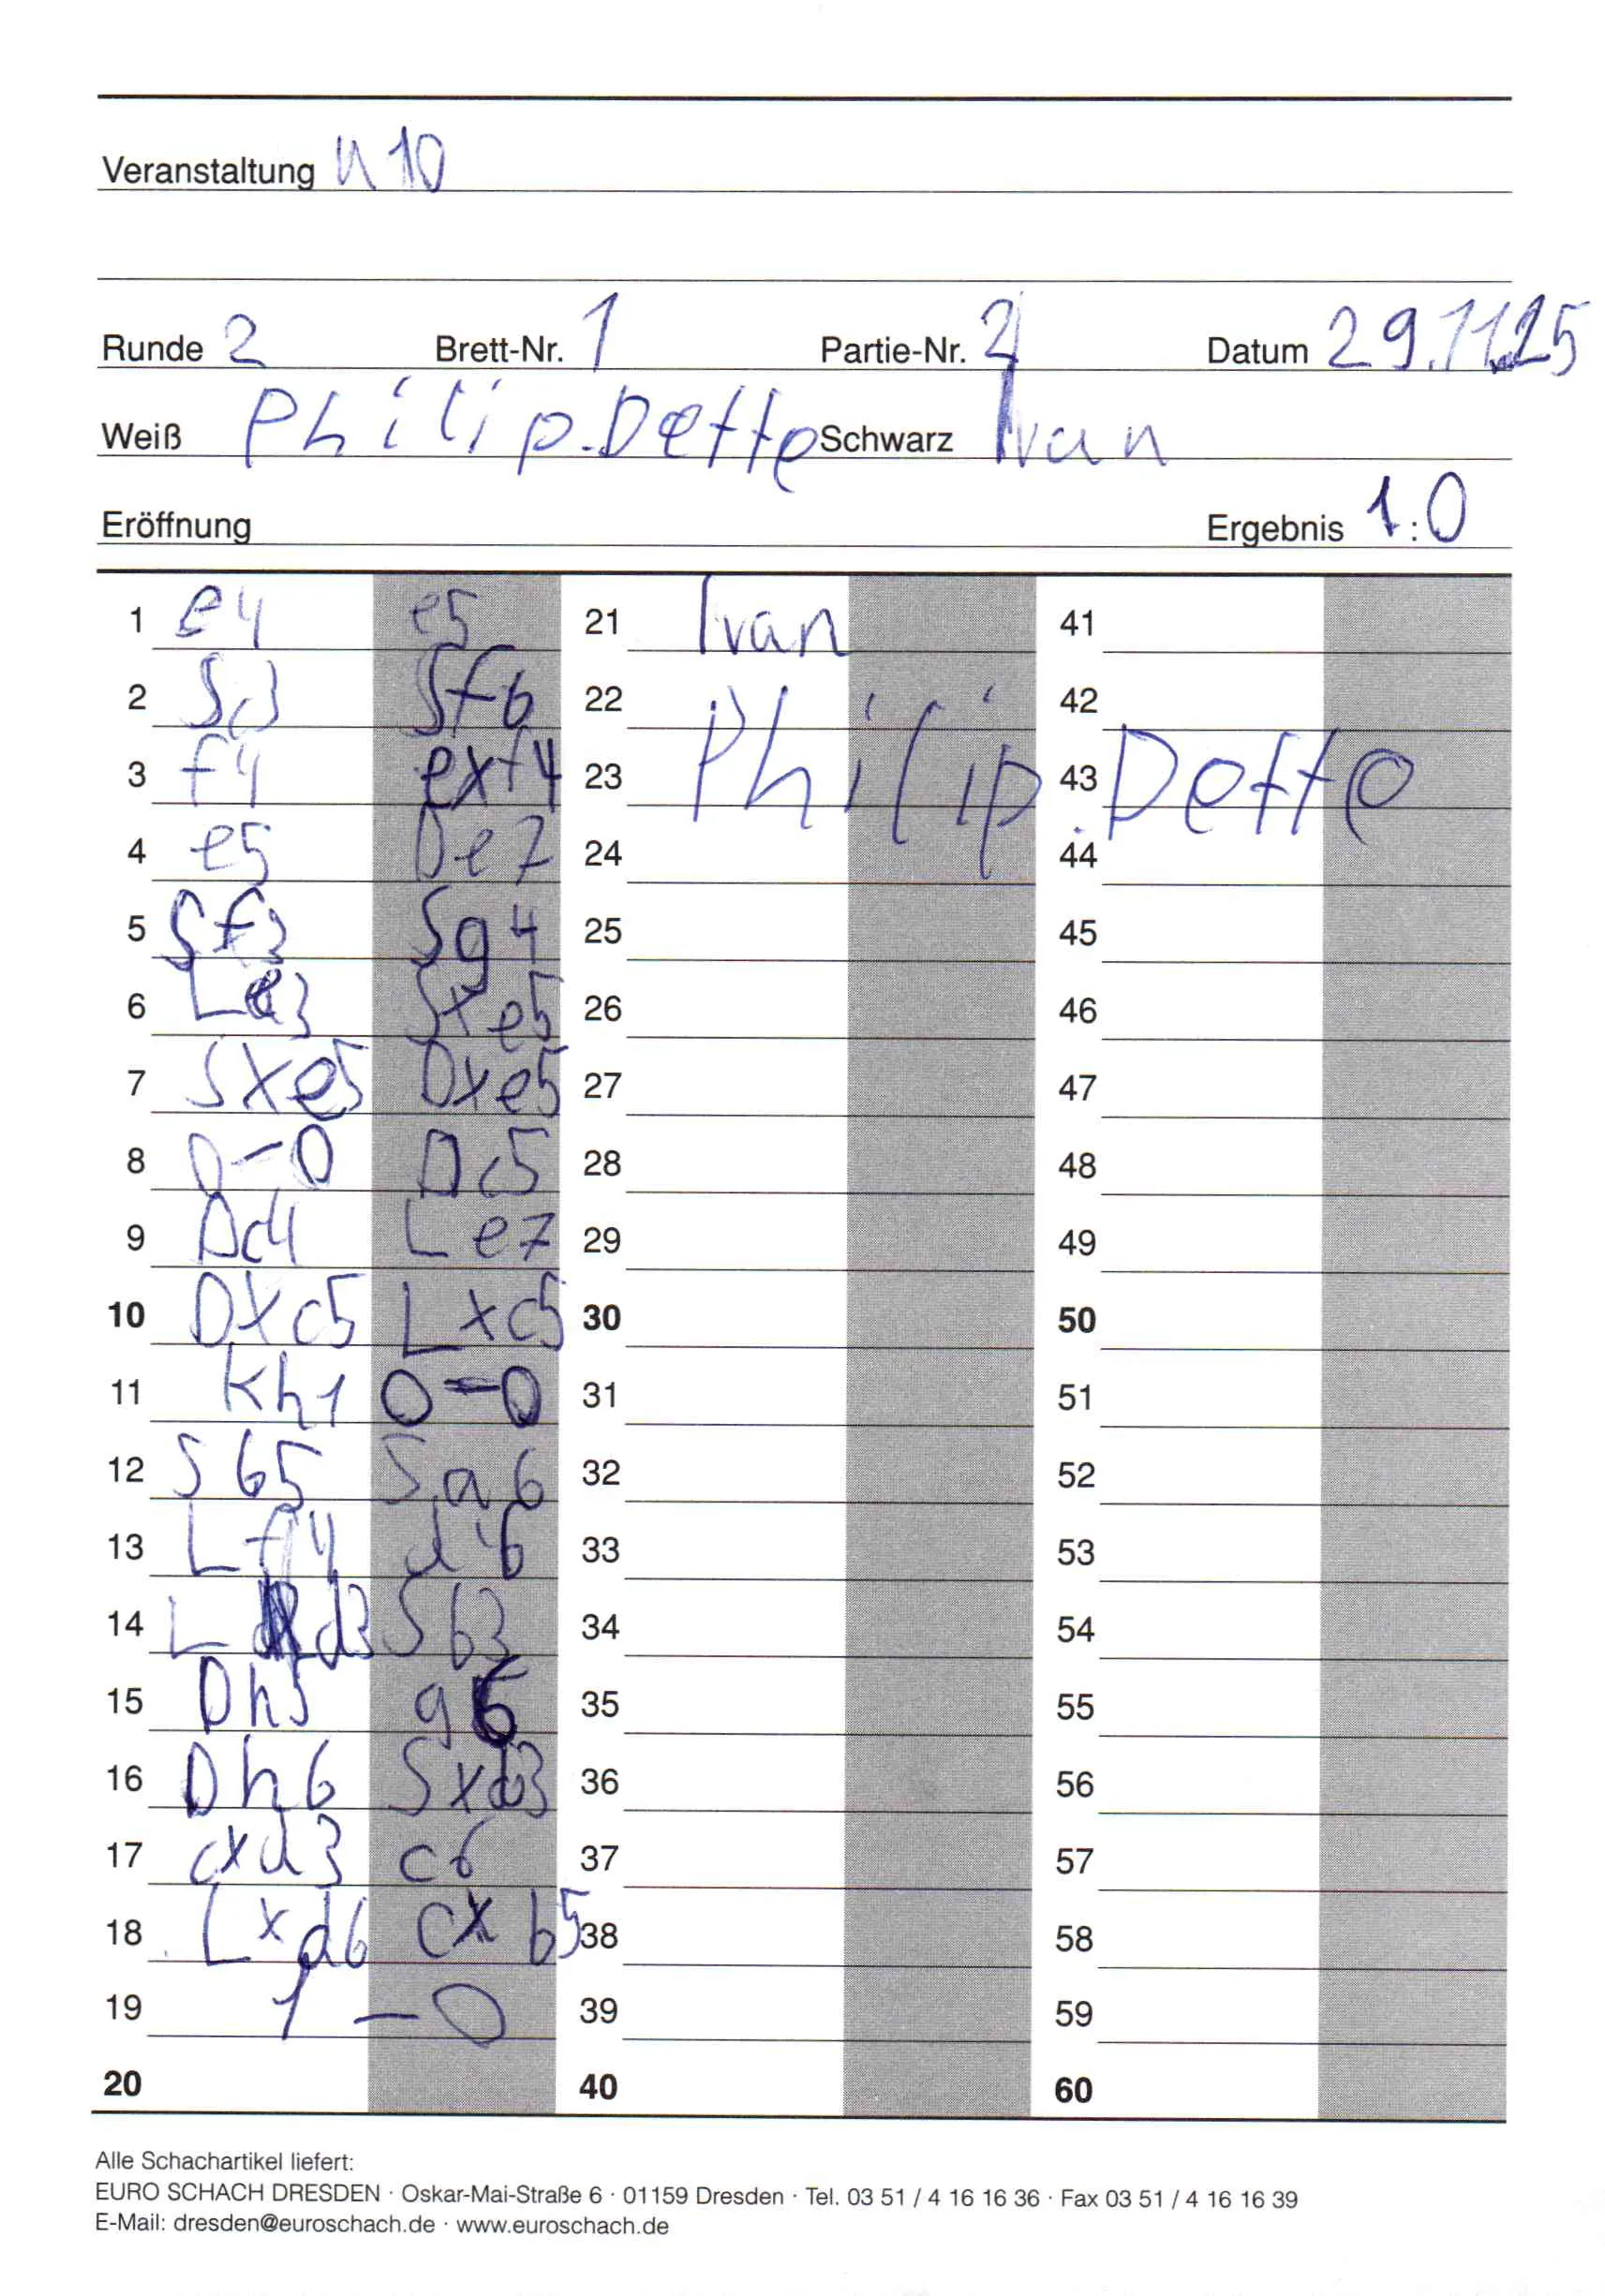 Veranstaltung U10
Runde 2 Brett-Nr. 1 Partie-Nr. 2 Datum 29.11.25
Weiß Philip.Dette Schwarz Ivan
Eröffnung Ergebnis 1:0
1 e4 e5 21 Ivan 41
2 Sc3 Sf6 22 42
3 f4 exf4 23 Philip.Dette 43
4 e5 De7 24 44
5 Sf3 Sg4 25 45
6 Le3 Sxe5 26 46
7 Sxe5 Dxe5 27 47
8 0-0 Dc5 28 48
9 Dd4 Le7 29 49
10 Dxc5 Lxc5 30 50
11 Kh1 0-0 31 51
12 Sb5 Sa6 32 52
13 Lf4 d6 33 53
14 Ld3 Sb3 34 54
15 Dh5 g6 35 55
16 Dh6 Sxd3 36 56
17 cxd3 c6 37 57
18 Lxd6 cxb5 38 58
19 1-0 39 59
20 40 60
Alle Schachartikel liefert:
EURO SCHACH DRESDEN · Oskar-Mai-Straße 6 · 01159 Dresden · Tel. 03 51 / 4 16 16 36 · Fax 03 51 / 4 16 16 39
E-Mail: dresden@euroschach.de · www.euroschach.de